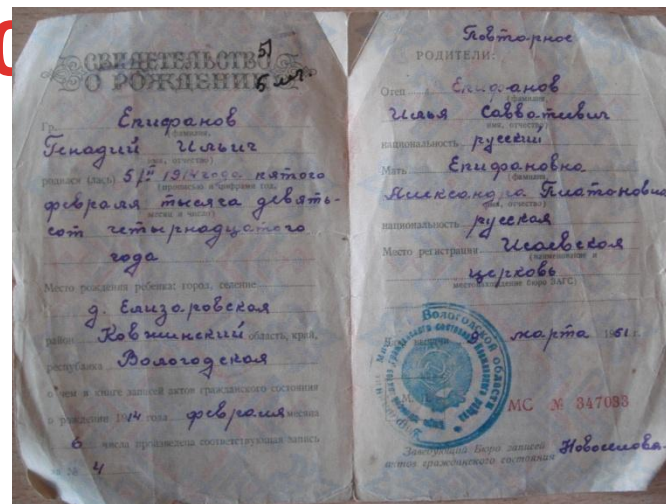 СВИДЕТЕЛЬСТВО
О РОЖДЕНИИ
Гр. Епифанов
(фамилия,
Генадий Ильич
имя, отчество)
родился (лась) 5/II 1914 года пятого
(прописью и цифрами год,
февраля тысяча девять-
месяц и число)
сот четырнадцатого
года
Место рождения ребенка: город, селение
д. Елизаровская
район Ковжинский область, край,
республика Вологодская
о чем в книге записей актов гражданского состояния
о рождении 1914 года февраля месяца
6 числа произведена соответствующая запись
за № 4
Повторное
РОДИТЕЛИ:
Отец Епифанов
(фамилия,
Илья Савватиевич
имя, отчество)
национальность русский
Мать Епифановна
(фамилия,
Александра Платоновна
имя, отчество)
национальность русская
Место регистрации Исаевская
(наименование и
церковь
местонахождение бюро ЗАГС)
марта 1951 г.
Вологодской области
МС № 347033
Заведующий Бюро записей
актов гражданского состояния Новоселова